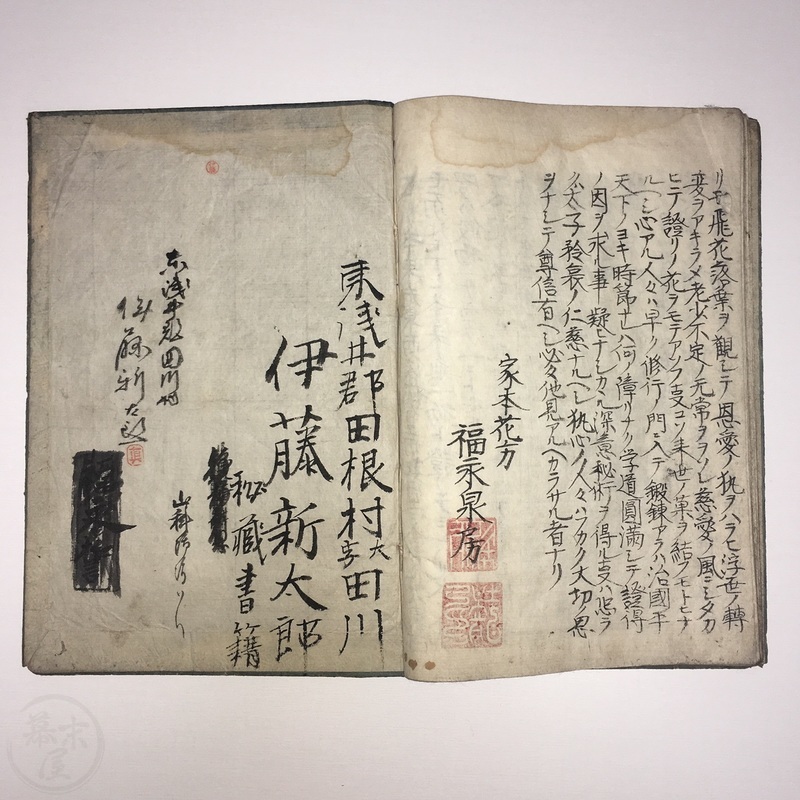 リモ飛花落葉ヲ觀シテ恩愛ノ執ヲハラヒ浮世ノ轉
変ヲアキラメ老少不定ノ无常ヲヲソレ慈愛ノ風ニシタカ
ヒテ證リノ花ヲモテアソフ事コソ来世ノ菓ヲ結フモトヒナ
ルヘシ心アル人々ハ早ク修行ノ門ニ入テ鍛錬アラハ治國平
天下ノヨキ時節也ハ何ノ障リナク学道圓滿シテ證得
ノ因ヲ求ル事疑ヒナシカヽル深意秘術ヲ得ル事ハ悉ク
太子矜哀ノ仁慈ナルヘシ執心ノ人々ハカク大切ノ思
ヲナシテ尊信有ヘシ必々他見アルヘカラサル者ナリ
家本花方
福永泉房
東浅井郡田根村大字田川
伊藤新太郎
秘藏書籍
東浅井郡田川村
伊藤新太郎
幕末屋